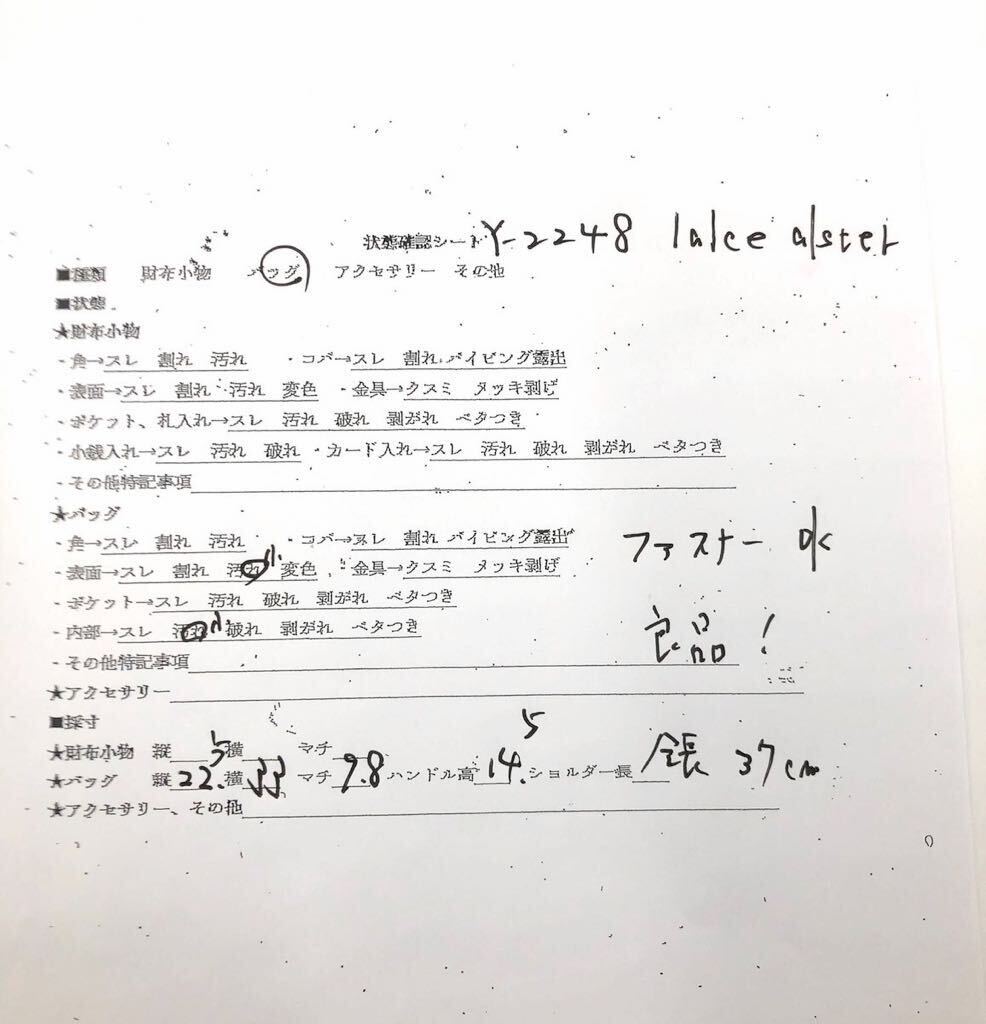 状態確認シート Y-2248 lalce alster
■種類 財布小物 バッグ アクセサリー その他
■状態
★財布小物
・角→スレ 割れ 汚れ ・コバ→スレ 割れ パイピング露出
・表面→スレ 割れ 汚れ 変色 ・金具→クスミ メッキ剥げ
・ポケット、札入れ→スレ 汚れ 破れ 剥がれ ベタつき
・小銭入れ→スレ 汚れ 破れ ・カード入れ→スレ 汚れ 破れ 剥がれ ベタつき
・その他特記事項
★バッグ
・角→スレ 割れ 汚れ ・コバ→スレ 割れ パイピング露出
ファスナー ok
・表面→スレ 割れ 汚れ 小 変色 ・金具→クスミ メッキ剥げ
・ポケット→スレ 汚れ 破れ 剥がれ ベタつき
・内部→スレ 汚れ 小 破れ 剥がれ ベタつき
良品!
・その他特記事項
★アクセサリー
■採寸
★財布小物 縦 横 マチ
★バッグ 縦 22.5 横 33 マチ 9.8 ハンドル高 14.5 ショルダー長 全長 37cm
★アクセサリー、その他